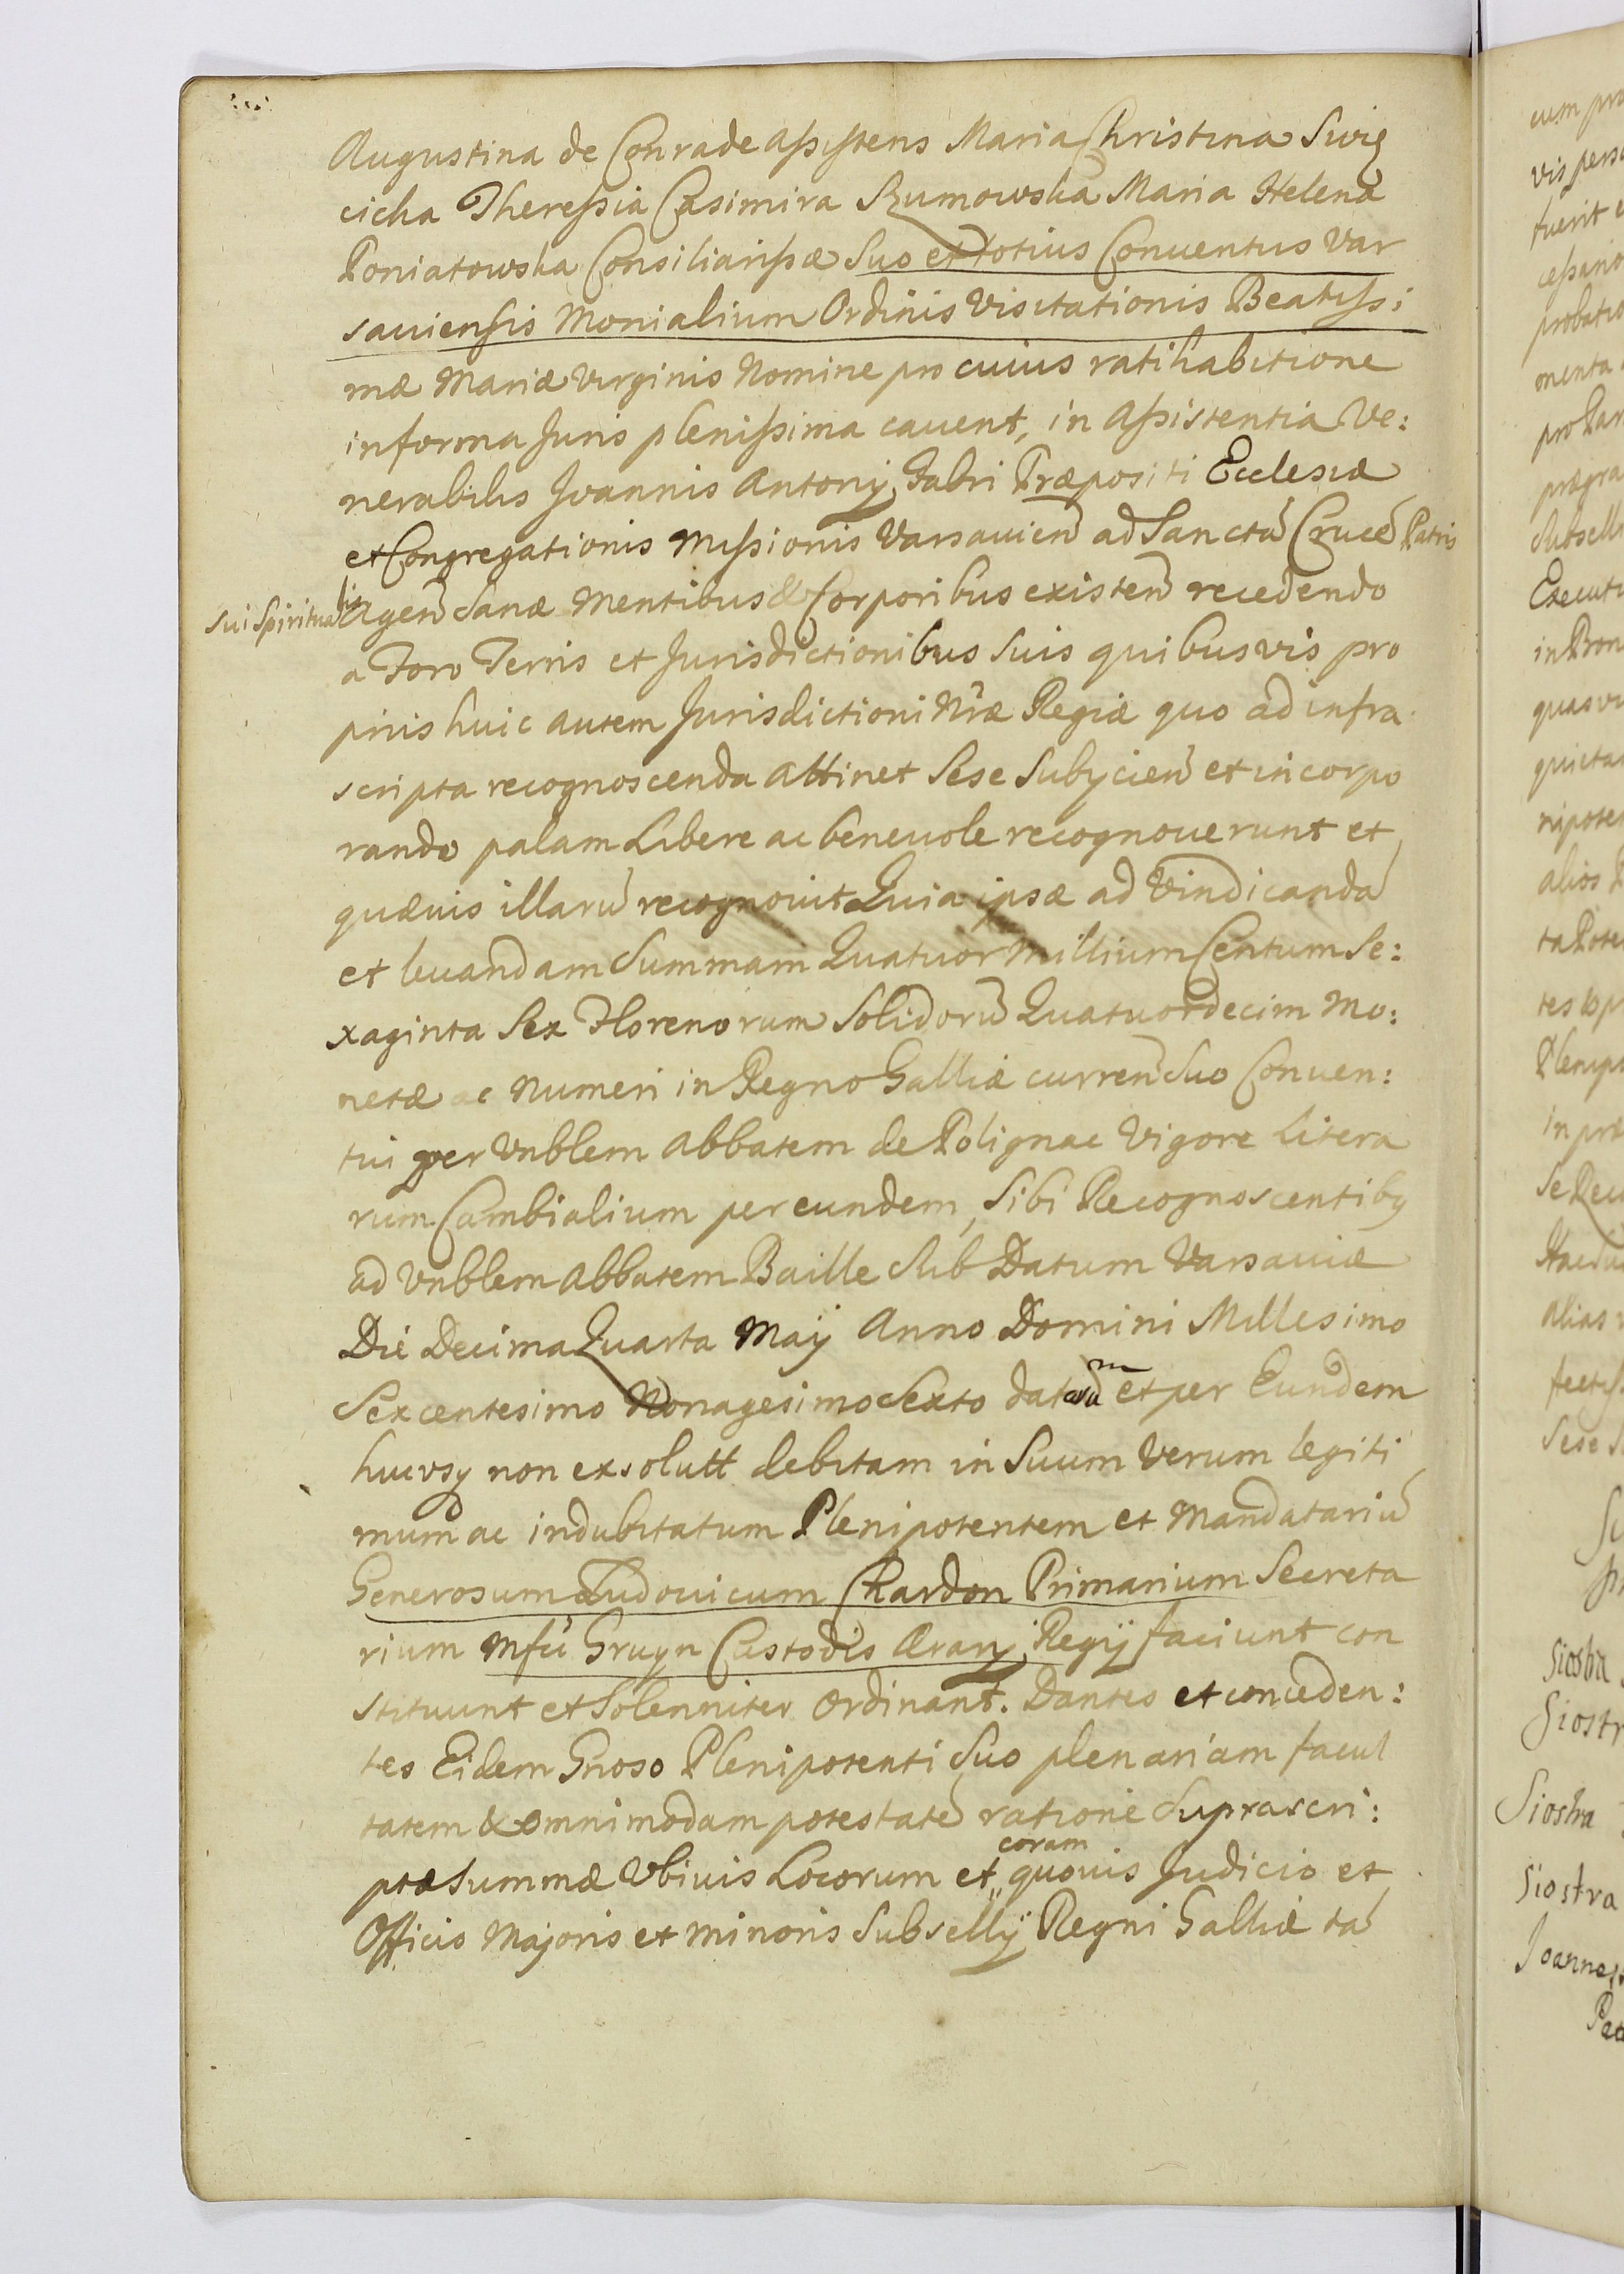 Augustina de Conrade assistens Maria Christina Swię
cicka Theressia Casimira Szumowska Maria Helena
Poniatowska Consiliarissæ Suo et totius Conuentus Var
sauiensis Monialium Ordinis Visitationis Beatissi:
mæ Mariæ Virginis Nomine pro cuius ratihabitione
in forma Juris plenissima cauent, in assistentia Ve:
nerabilis Joannis Antonij Fabri Præpositi Ecclesiæ
et Congregationis Missionis Varsauien̄ ad Sanctū Crucē Patris
sui Spiritualis Agen̄ Sanæ Mentibus & Corporibus existen̄ recedendo
a Foro Terris et Jurisdictionibus Suis quibusvis pro
prijs huic autem Jurisdictioni Nr̄æ Regiæ quo ad infra
scripta recognoscenda attinet Sese Subijcien̄ et incorpo
rando palam Libere ac beneuole recognouerunt et
quæuis illarū recognouit Quia ipsæ ad Vindicandā
et leuandam Summam Quatuor Millium Centum Se:
xaginta Sex Florenorum Solidorū Quatuordecim Mo:
netæ ac Numeri in Regno Galliæ curren̄ Suo Conuen:
tui per Vnblem Abbatem de Polignac Vigore Litera
rum Cambialium per eundem, Sibi Recognoscentibq
ad Vnblem Abbatem Baille Sub Datum Varsauiæ
Die Decima Quarta Maij Anno Domini Millesimo
Sexcentesimo Nonagesimo Sexto datarum et per Eundem
hucvsq non exsolutt debitam in Suum Verum legiti
mum ac indubitatum Plenipotentem et Mandatariū
Generosum Ludouicum Chardon Primarium Secreta
rium Mfci Gruyn Custodis Ærarij Regij faciunt con
stituunt et Solenniter Ordinant. Dantes et conceden:
tes Eidem Gnoso Plenipotenti Suo plenariam facul
tatem & omnimodam potestatē ratione Suprascri:
ptæ Summæ Vbiuis Locorum et coram quouis Judicio et
Officio Majoris et Minoris Subsellij Regni Galliæ tā
cum
vis
fuerit

probatio
menta

Executi
in Bon
quasvi
quietan
alios
alias
Siostra
Siostra
Siostra
Joannes